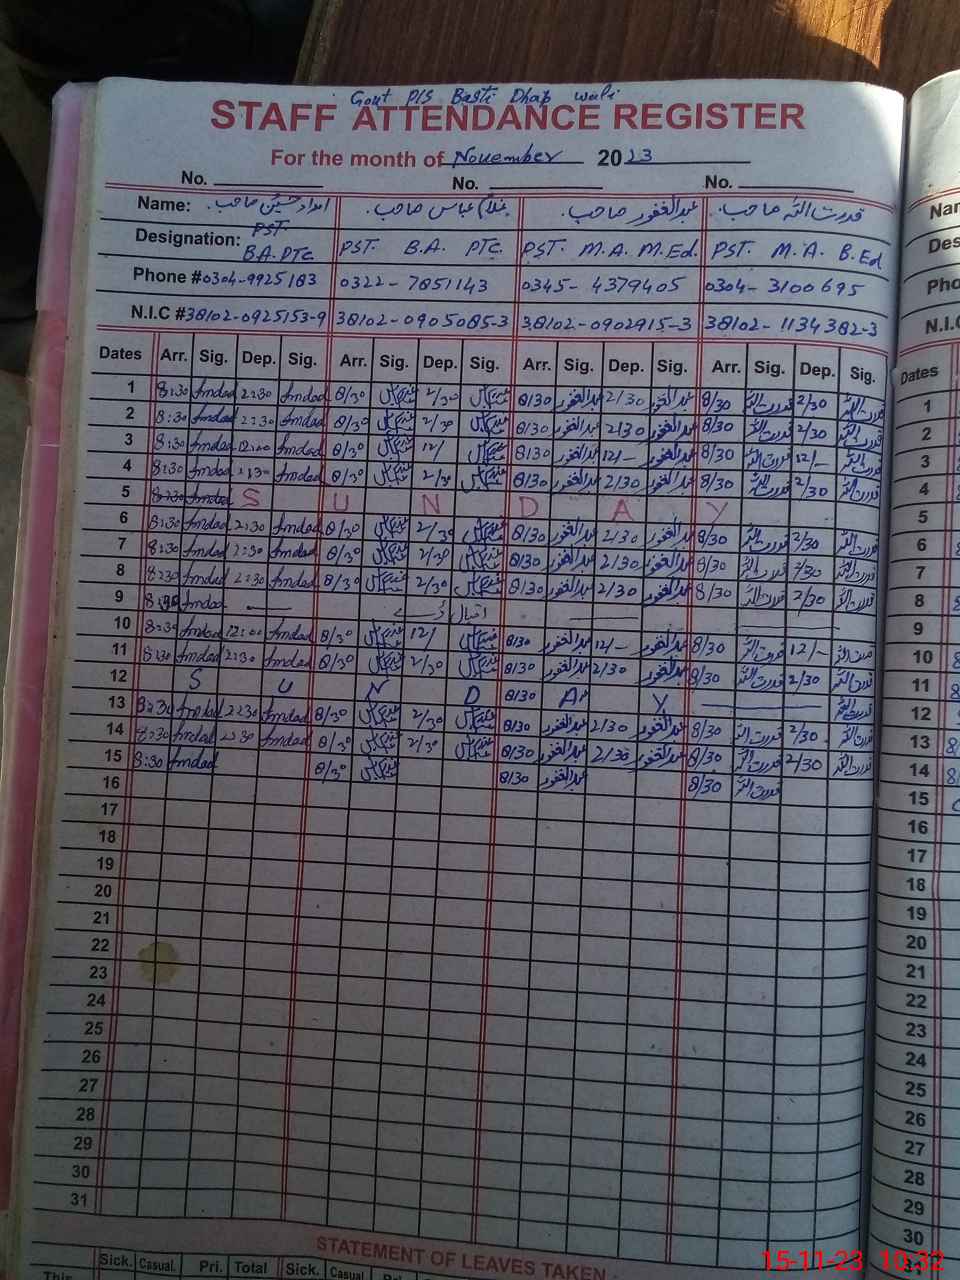 Govt P/S Basti Dhap wali
STAFF ATTENDANCE REGISTER
For the month of November 2023
No. No. No.
Name: امداد حسین صاحب۔ غلام عباس صاحب۔ عبدالغفور صاحب۔ قدرت اللہ صاحب۔
Designation: PST. B.A. PTC PST. B.A. PTC PST. M.A. M.Ed. PST. M.A. B.Ed
Phone # 0304-9925183 0322-7851143 0345-4379405 0304-3100695
N.I.C # 38102-0925153-9 38102-0905085-3 38102-0902915-3 38102-1134382-3
Dates Arr. Sig. Dep. Sig. Arr. Sig. Dep. Sig. Arr. Sig. Dep. Sig. Arr. Sig. Dep. Sig.
1 8:30 Amdad 2:30 Amdad 8/30 2/30 8/30 عبدالغفور 2/30 عبدالغفور 8/30 قدرت اللہ 2/30 قدرت اللہ
2 8:30 Amdad 2:30 Amdad 8/30 2/30 8/30 عبدالغفور 2/30 عبدالغفور 8/30 قدرت اللہ 2/30 قدرت اللہ
3 8:30 Amdad 12:00 Amdad 8/30 12/ 8/30 عبدالغفور 12/- عبدالغفور 8/30 قدرت اللہ 12/- قدرت اللہ
4 8:30 Amdad 2:30 Amdad 8/30 2/30 8/30 عبدالغفور 2/30 عبدالغفور 8/30 قدرت اللہ 2/30 قدرت اللہ
5 8:30 Amdad S U N D A Y
6 8:30 Amdad 2:30 Amdad 8/30 2/30 8/30 عبدالغفور 2/30 عبدالغفور 8/30 قدرت اللہ 2/30 قدرت اللہ
7 8:30 Amdad 2:30 Amdad 8/30 2/30 8/30 عبدالغفور 2/30 عبدالغفور 8/30 قدرت اللہ 2/30 قدرت اللہ
8 8:30 Amdad 2:30 Amdad 8/30 2/30 8/30 عبدالغفور 2/30 عبدالغفور 8/30 قدرت اللہ 2/30 قدرت اللہ
9 8:30 Amdad اقبال ڈے
10 8:30 Amdad 12:00 Amdad 8/30 12/ 8/30 عبدالغفور 12/- عبدالغفور 8/30 قدرت اللہ 12/- قدرت اللہ
11 8:30 Amdad 2:30 Amdad 8/30 2/30 8/30 عبدالغفور 2/30 عبدالغفور 8/30 قدرت اللہ 2/30 قدرت اللہ
12 S U N D 8/30 A Y قدرت اللہ
13 8:30 Amdad 2:30 Amdad 8/30 2/30 8/30 عبدالغفور 2/30 عبدالغفور 8/30 قدرت اللہ 2/30 قدرت اللہ
14 8:30 Amdad 2:30 Amdad 8/30 2/30 8/30 عبدالغفور 2/30 عبدالغفور 8/30 قدرت اللہ 2/30 قدرت اللہ
15 8:30 Amdad 8/30 8/30 عبدالغفور 8/30 قدرت اللہ
16
17
18
19
20
21
22
23
24
25
26
27
28
29
30
31
STATEMENT OF LEAVES TAKEN
Sick. Casual. Pri. Total Sick. Casual
This
Nar
Des
Pho
N.I.
Dates
1
2
3
4
5
6
7
8
9
10
11
12
13
14
15
16
17
18
19
20
21
22
23
24
25
26
27
28
29
30
15-11-23 10:32